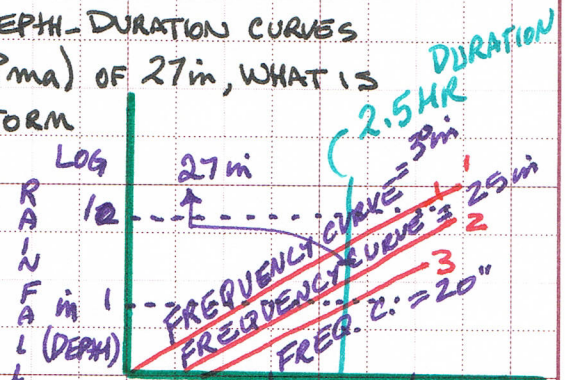 EPTH-DURATION CURVES
Pma) OF 27in, WHAT IS
TORM
DURATION
2.5HR
LOG
27 in
RAINFALL
10
in 1
(DEPTH)
FREQUENCY CURVE = 30in
1
FREQUENCY CURVE = 25in
2
FREQ. C. = 20"
3